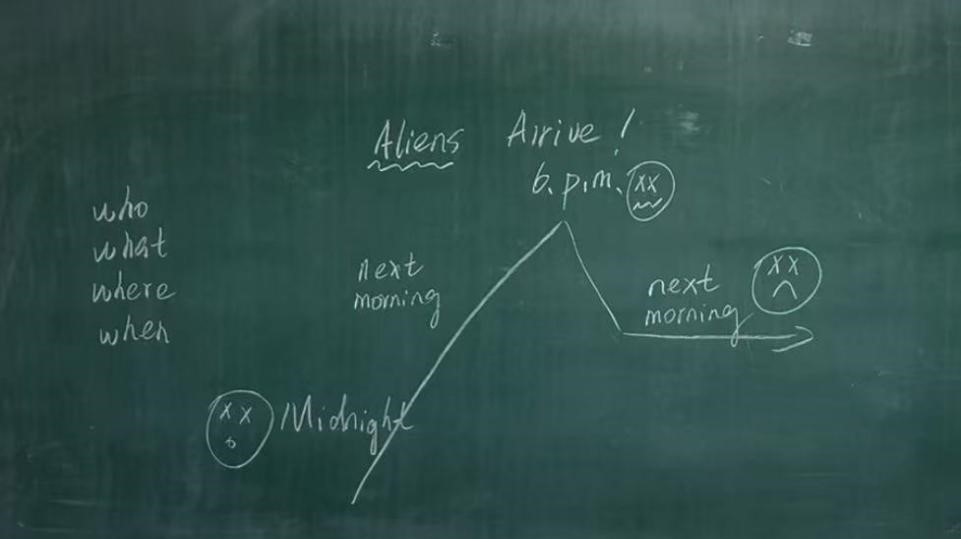 Aliens Arrive!
6. p.m.
who
what
where
when
next
morning
next
morning
Midnight